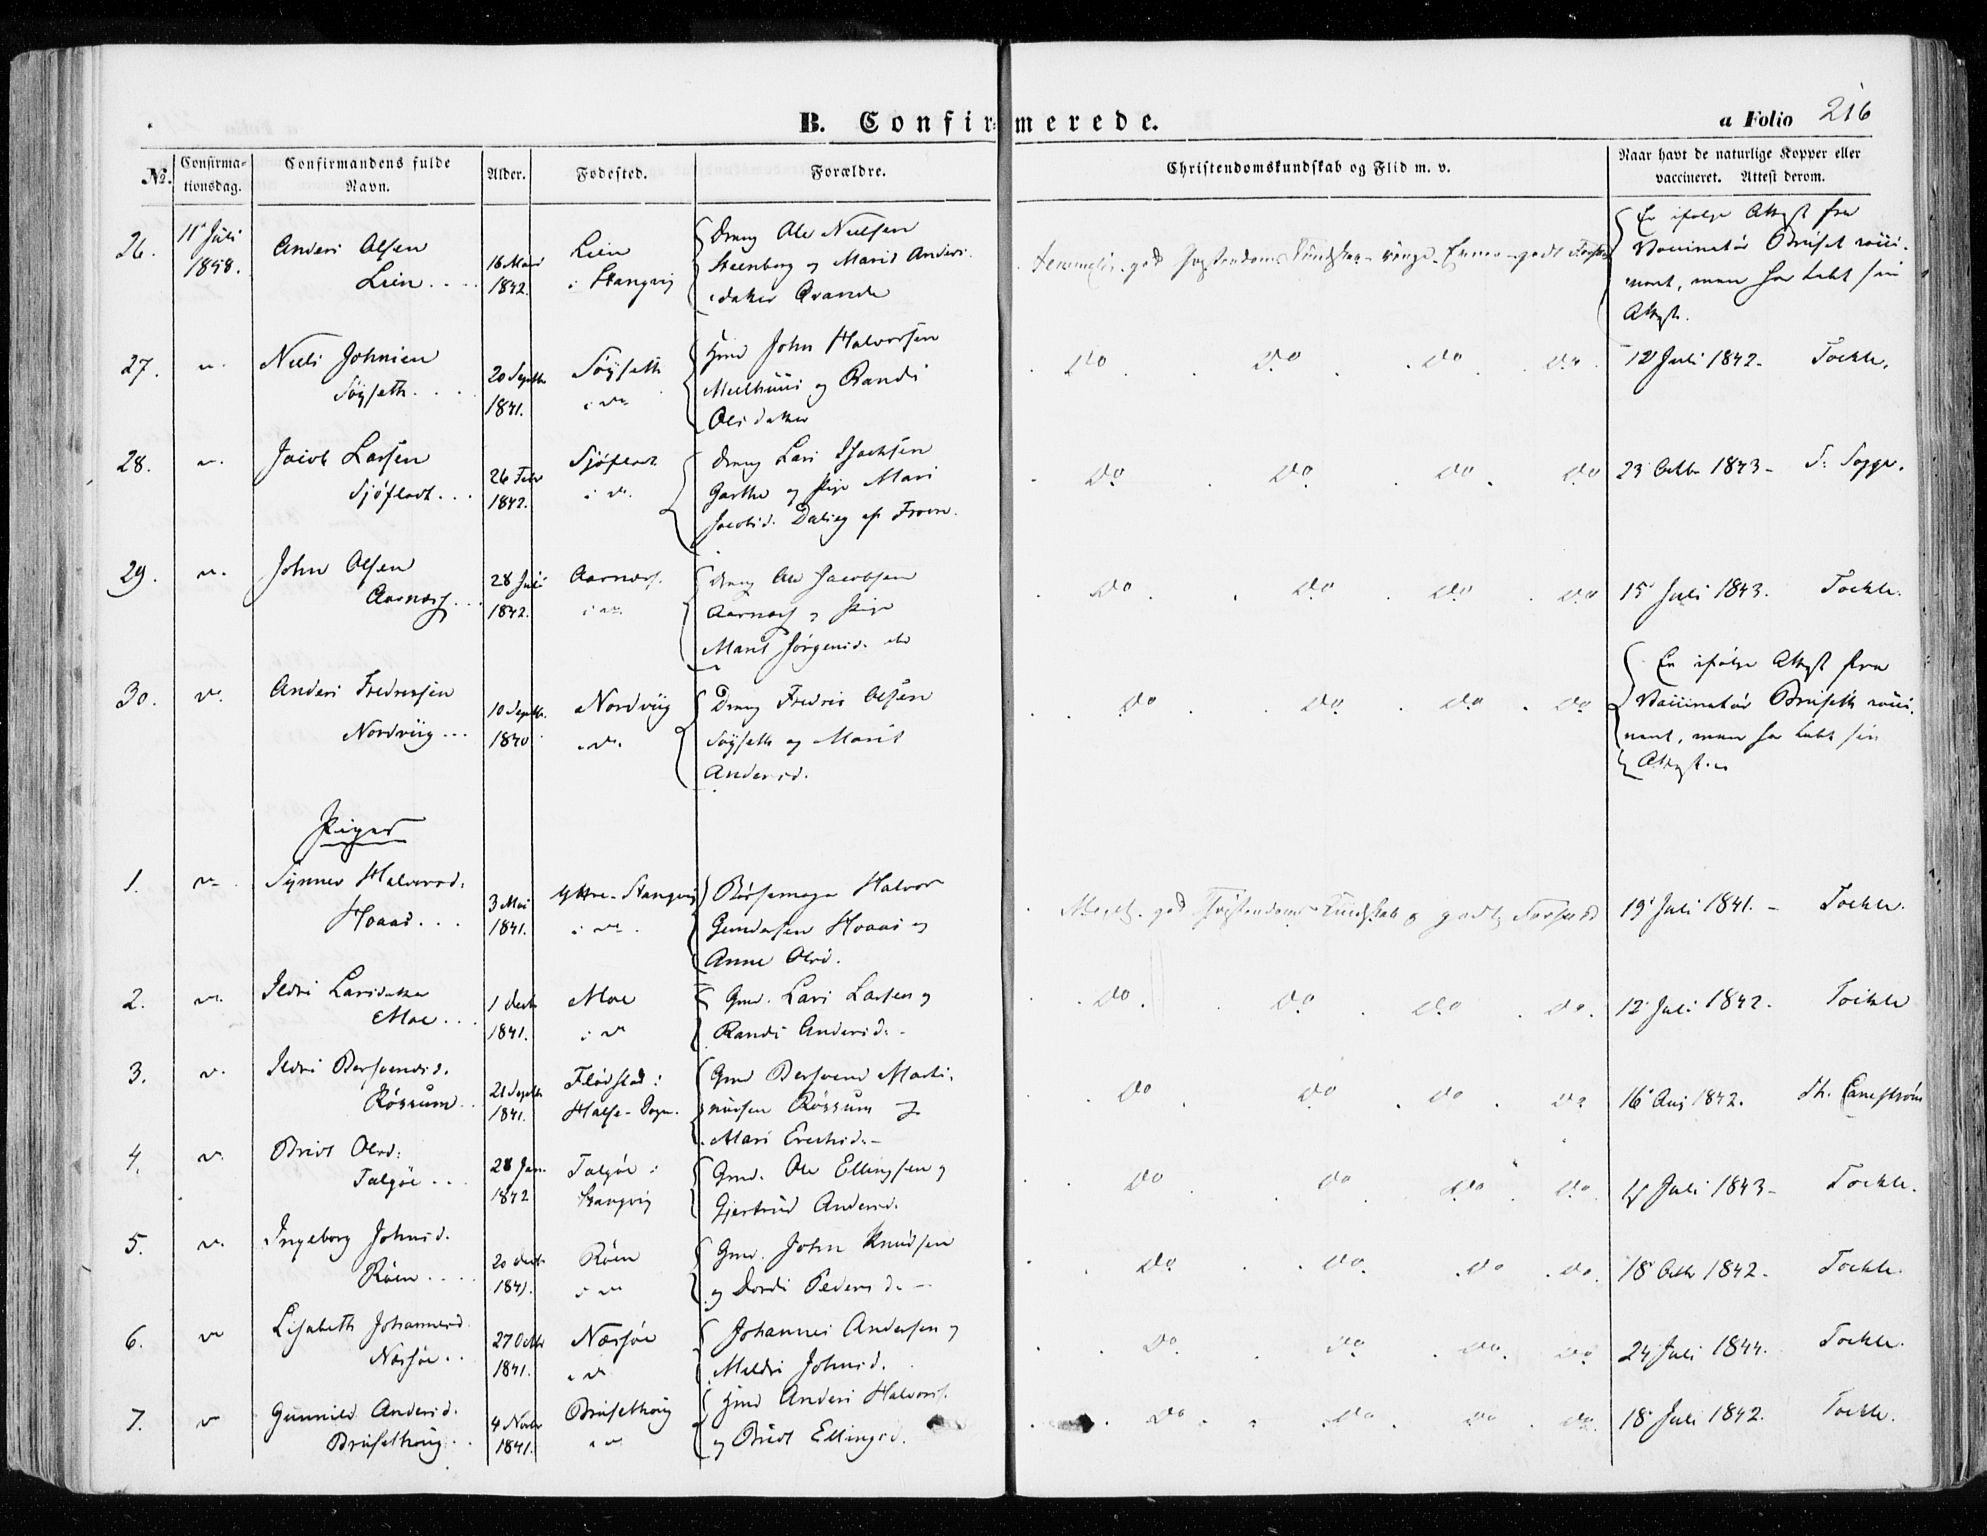 B. Confirmerede.
a Folio 216
No.
Confirmationsdag.
Confirmandens fulde Navn.
Alder.
Fødested.
Forældre.
Christendomskundskab og Flid m. v.
Naar havt de naturlige Kopper eller vaccineret. Attest derom.
26. 11 Juli Anders Olsen Lien Drag Ole Nielsen Er ifølge Attest fra
1858. Lien 16 Mars i Stangvig Steenberg og Marit Anders. temmelig god Christendoms Kundskab godt Forhold Vaccinatør Bruset vacci-
1842. datter neret, men har tabt sin
Attest.
27. Niels Johnsen 20 Septb. Søyseth John Halvorsen do do do do 12 Juli 1842. Toehle.
Søyseth 1841. i do Meelhuus og Randi
Olsdatter
28. Jacob Larsen 26 Febr Sjøflodt Drag Lars do do do do 23 Octbr 1843 S. Sogge.
Sjøflodt 1842. i do og Pige Mari
Jacobsd.
29. John Olsen 28 Juli Aarnæs Drag Ole Jacobsen do do do do 15 Juli 1843. Toehle.
Aarnæs 1842. i do Aarnæs og Pige
Marit Jørgensd.
30. do Anders Fredriksen 10 Septb. Nordviig Drag Fredric Olsen do do do do Er ifølge Attest fra
Nordviig 1840 i do Søyseth og Marit Vaccinatør Bruseth vacci-
Andersd. neret, men har tabt sin
Attest.
Piger
1. do Synnev Halvorsd. 3 Mai Yttre-Stangvig Halvor god Christendoms Kundskab og godt Forhold 19 Juli 1841. Toehle.
Hoaas 1841. i do Gundersen Hoaas og
Anne Olsd.
2. do Ildri Larsdatter 1 Decbr Moe Gmd. Lars Larsen og do do do do 12 Juli 1842. Toehle
Moe 1841. i do Randi Andersd.
3. do Ildri Bersvendsd. 21 Septb. Flødstad i Gmd Bersvend do do do do 16 Aug 1842.
Røssum 1841. Halse-Sogn. Røssum og
Mari
4. do Brit Olsd. 28 Jan. Talgøe i Gmd. Ole Ellingsen og do do do do Juli 1843 Toehle.
Talgøe 1842 Stangvig Gjertrud Andersd.
5. do Ingeborg Johnsd. 20 Decbr Røen Gmd. John Knudsen do do do do 18 Octbr 1842. Toehle.
Røen 1841. i do og Dordi Pedersd.
6. do Lisabeth Johannesd. 27 Octbr Næsjøe Johannes Andersen og do do do do 24 Juli 1844. Toehle.
Næsjøe 1841. i do Meldri Johnsd.
7. do Gunnild Andersd. 4 Novbr Brusethoug Anders Halvors. do do do do 18 Juli 1842. Toehle.
Brusethoug 1841. i do og Brit Ellingsd.